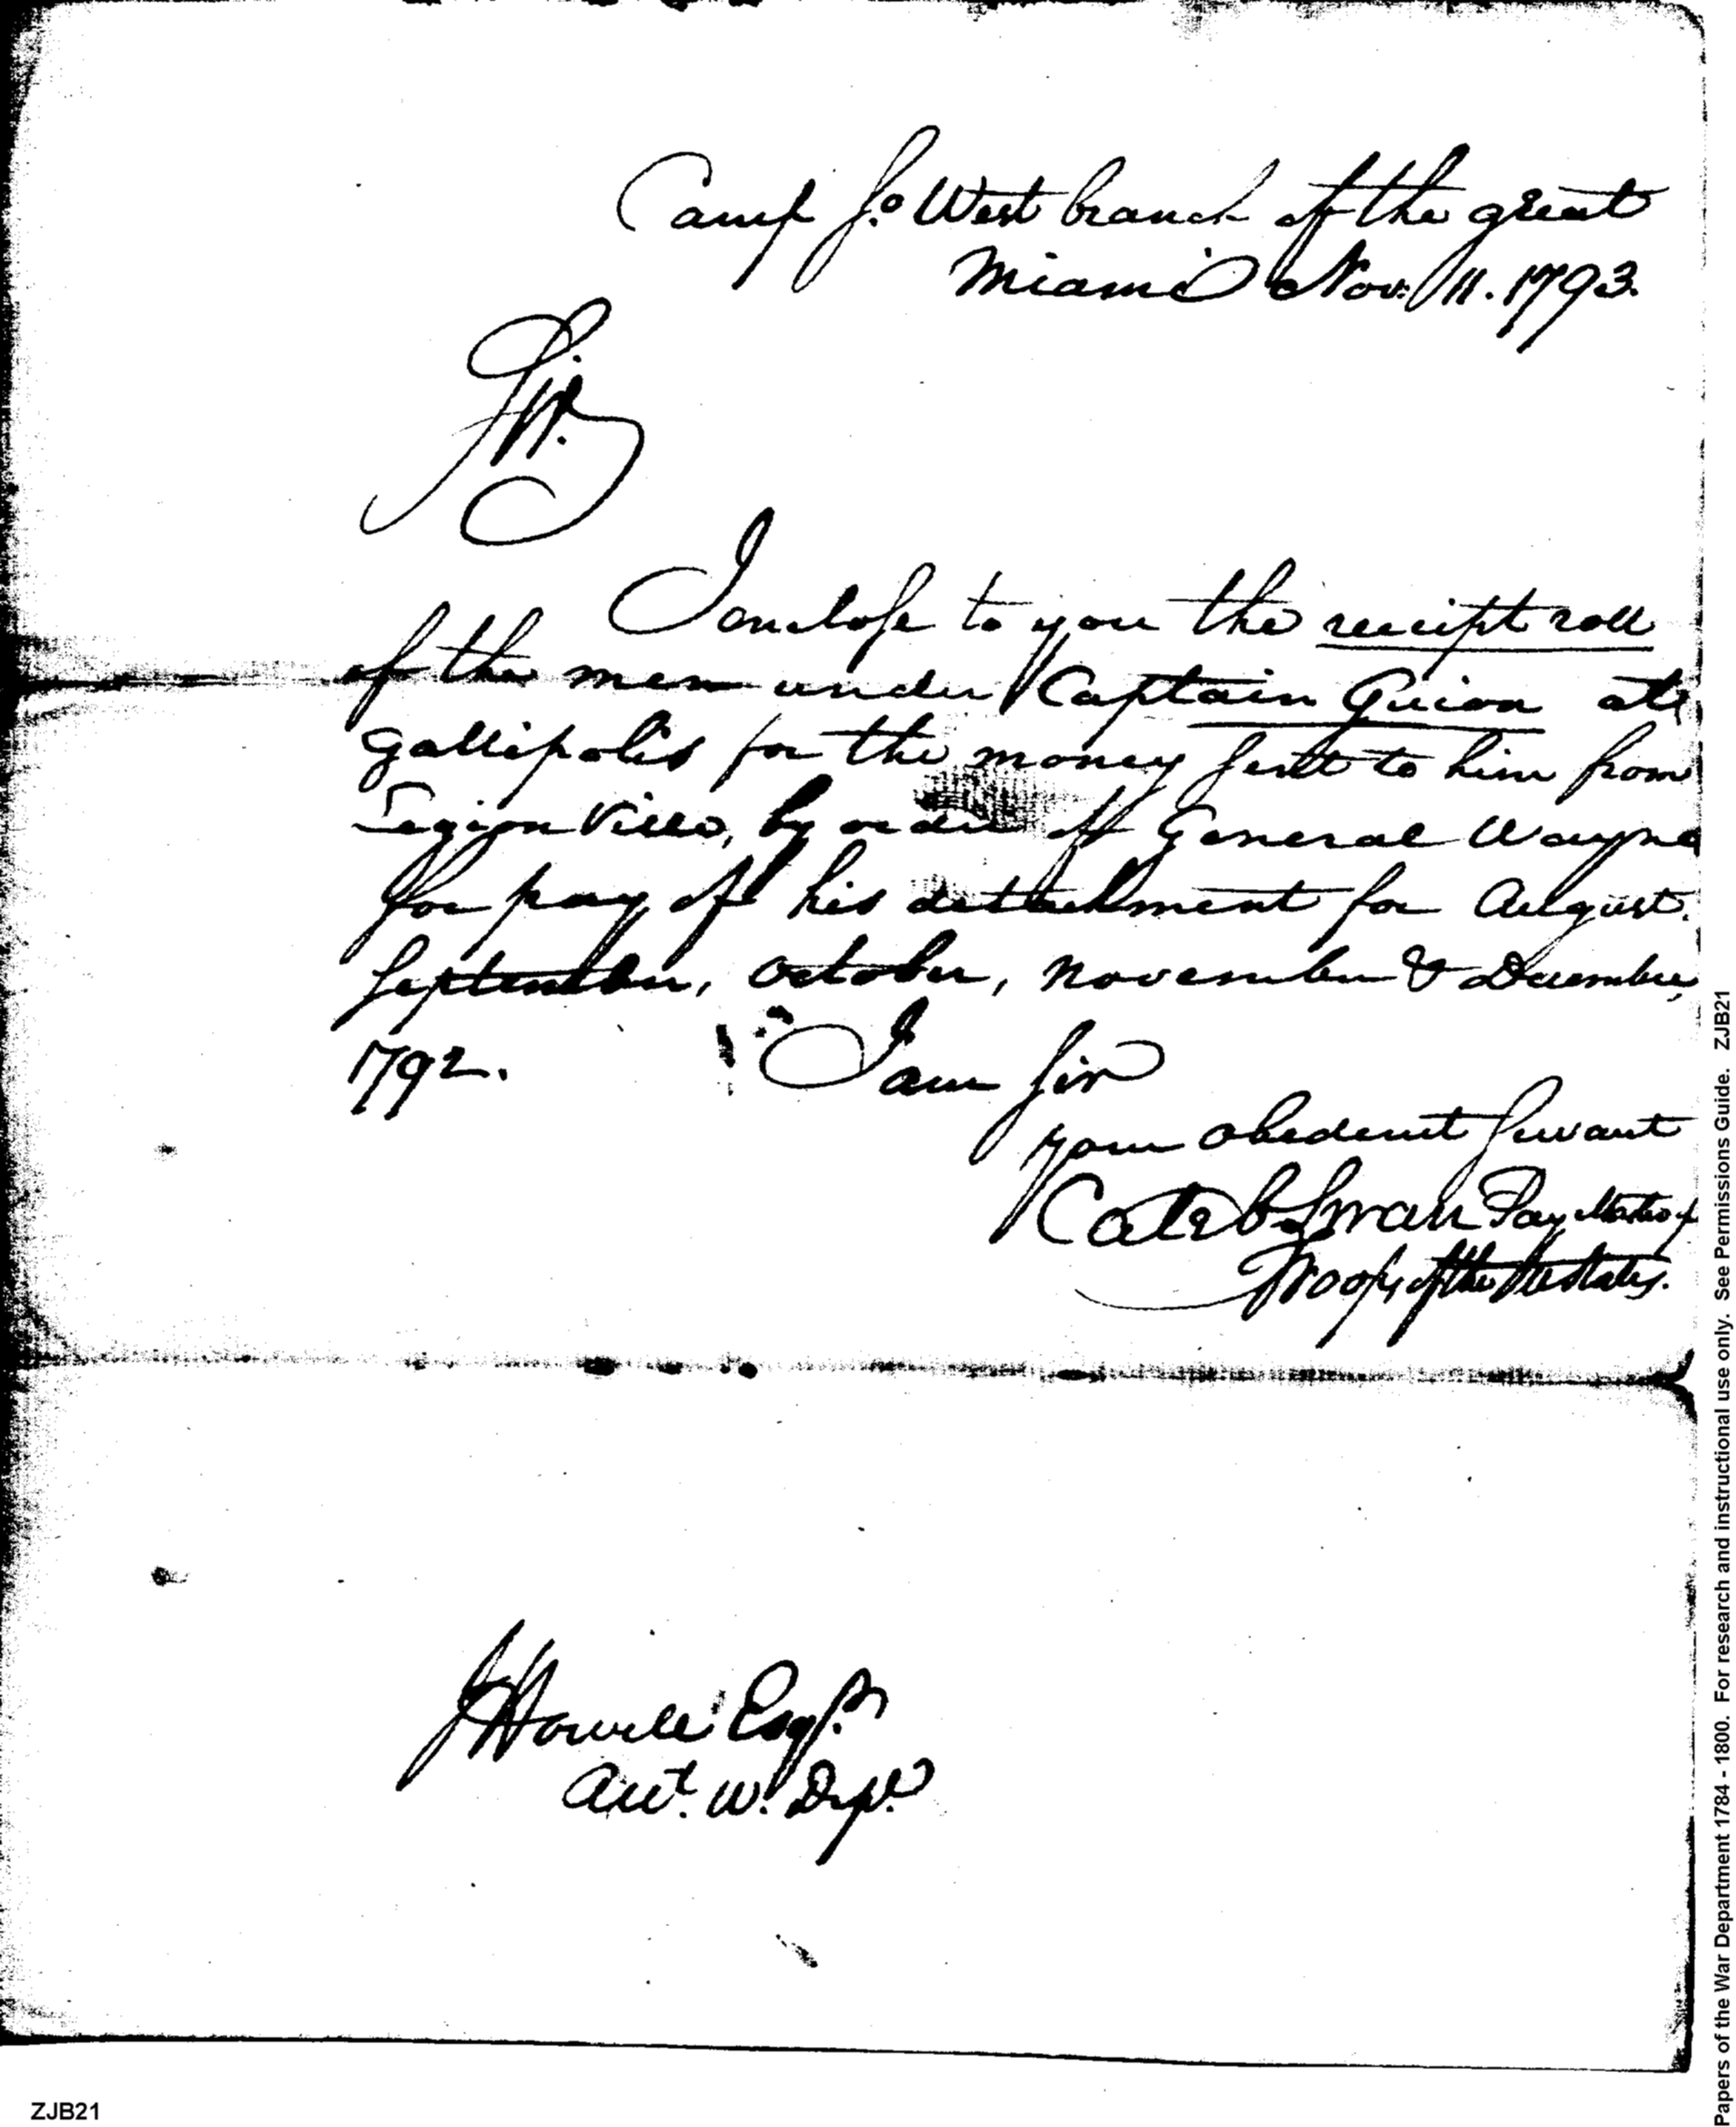 Camp So. West branch of the great
Miami Nov. 11. 1793.
Sir.
I enclose to you the receipt roll
of the men under Captain Guion at
Gallipolis for the money sent to him from
Legion Ville, by order of General Wayne
for pay of his detachment for August.
September, October, November & December,
1792. I am sir
your obedient servant
Caleb Swan Pay Master of
Troops of the U States.
J Howell Esqr.
Acct. W. Dept.
ZJB21
Papers of the War Department 1784 - 1800. For research and instructional use only. See Permissions Guide. ZJB21